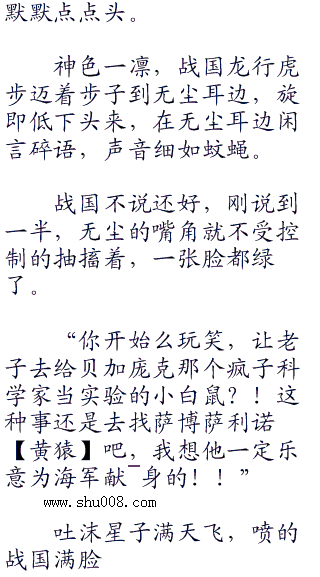 默默点点头。
神色一凛，战国龙行虎
步迈着步子到无尘耳边，旋
即低下头来，在无尘耳边闲
言碎语，声音细如蚊蝇。
战国不说还好，刚说到
一半，无尘的嘴角就不受控
制的抽搐着，一张脸都绿
了。
“你开始么玩笑，让老
子去给贝加庞克那个疯子科
学家当实验的小白鼠？！这
种事还是去找萨博萨利诺
【黄猿】吧，我想他一定乐
意为海军献¯身的！！”
www.shu008.com
吐沫星子满天飞，喷的
战国满脸